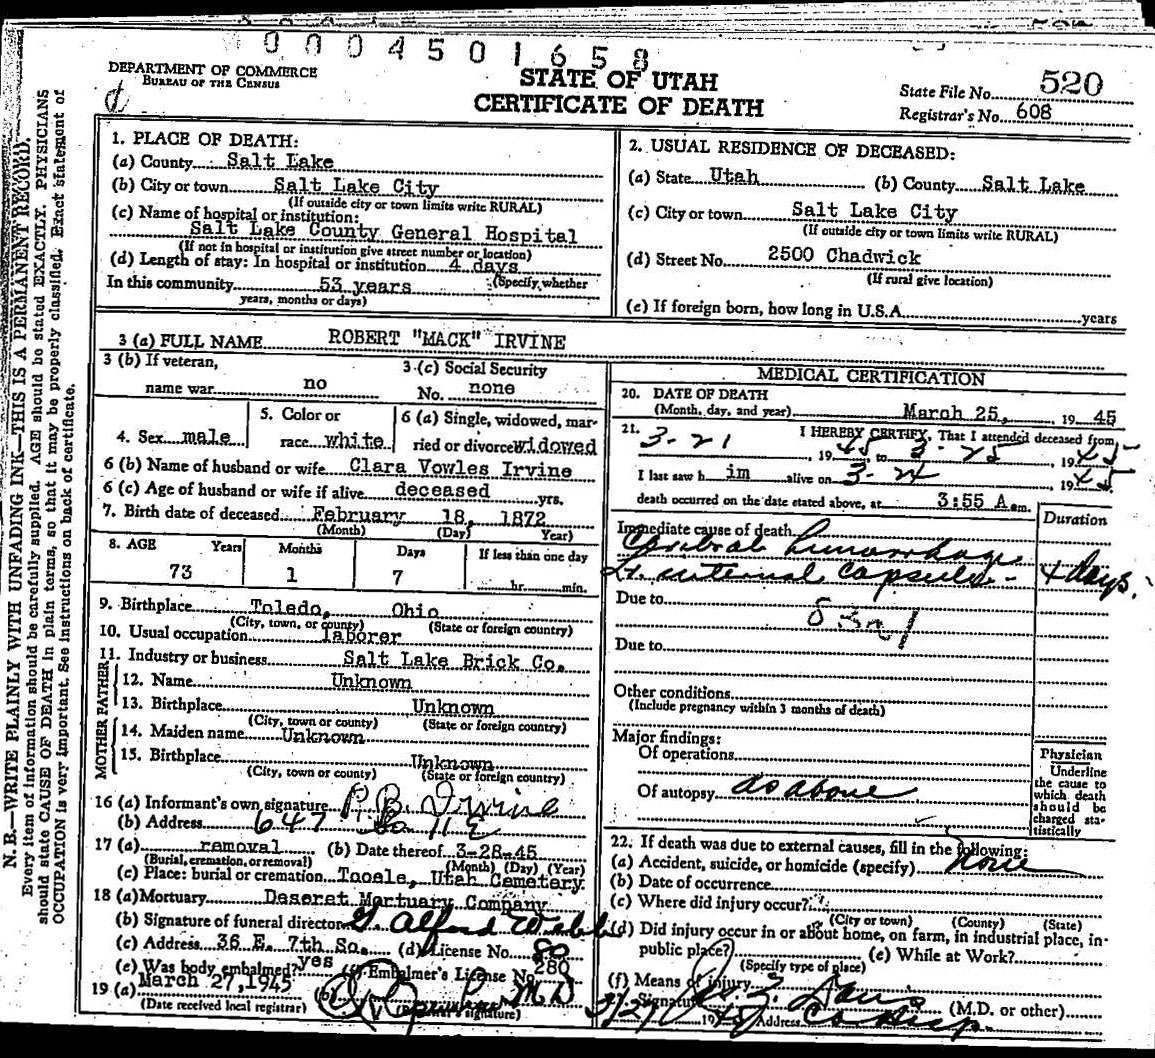 0004501658
DEPARTMENT OF COMMERCE
BUREAU OF THE CENSUS
STATE OF UTAH
CERTIFICATE OF DEATH
State File No. 520
Registrar's No. 608
N. B.—WRITE PLAINLY WITH UNFADING INK—THIS IS A PERMANENT RECORD.
Every item of information should be carefully supplied. AGE should be stated EXACTLY. PHYSICIANS
should state CAUSE OF DEATH in plain terms, so that it may be properly classified. Exact statement of
OCCUPATION is very important. See instructions on back of certificate.
1. PLACE OF DEATH:
(a) County Salt Lake
(b) City or town Salt Lake City
(If outside city or town limits write RURAL)
(c) Name of hospital or institution:
Salt Lake County General Hospital
(If not in hospital or institution give street number or location)
(d) Length of stay: In hospital or institution 4 days
(Specify whether
In this community 53 years
years, months or days)
2. USUAL RESIDENCE OF DECEASED:
(a) State Utah (b) County Salt Lake
(c) City or town Salt Lake City
(If outside city or town limits write RURAL)
(d) Street No. 2500 Chadwick
(If rural give location)
(e) If foreign born, how long in U.S.A. years
3 (a) FULL NAME ROBERT "MACK" IRVINE
3 (b) If veteran,
name war no
3 (c) Social Security
No. none
4. Sex male
5. Color or
race white
6 (a) Single, widowed, mar-
ried or divorced widowed
6 (b) Name of husband or wife Clara Vowles Irvine
6 (c) Age of husband or wife if alive deceased yrs.
7. Birth date of deceased February 18, 1872
(Month) (Day) Year)
8. AGE Years Months Days If less than one day
73 1 7 hr. min.
9. Birthplace Toledo, Ohio
(City, town, or county) (State or foreign country)
10. Usual occupation laborer
11. Industry or business Salt Lake Brick Co.
FATHER
12. Name Unknown
13. Birthplace Unknown
(City, town or county) (State or foreign country)
MOTHER
14. Maiden name Unknown
15. Birthplace Unknown
(City, town or county) (State or foreign country)
16 (a) Informant's own signature Irvine
(b) Address 647 So 11 E
17 (a) removal (b) Date thereof 3-28-45
(Burial, cremation, or removal) (Month) (Day) (Year)
(c) Place: burial or cremation Tooele, Utah Cemetery
18 (a) Mortuary Deseret Mortuary Company
(b) Signature of funeral director G. Alford Webb
(c) Address 36 E. 7th So. (d) License No. 80
(e) Was body embalmed? yes (f) Embalmer's License No. 280
19 (a) March 27, 1945 (b) M D
(Date received local registrar) signature)
MEDICAL CERTIFICATION
20. DATE OF DEATH
(Month, day, and year) March 25, 19 45
21. I HEREBY CERTIFY, That I attended deceased from
3-21, 19 45 to 3-25, 19 45
I last saw h im alive on 3-24, 19 45
death occurred on the date stated above, at 3:55 A m.
Duration
Immediate cause of death
Cerebral hemorrhage
Lt. internal capsule - 4 days.
Due to
Due to
Other conditions
(Include pregnancy within 3 months of death)
Major findings:
Of operations
Of autopsy as above
Physician
Underline
the cause to
which death
should be
charged sta-
tistically
22. If death was due to external causes, fill in the following:
(a) Accident, suicide, or homicide (specify) none
(b) Date of occurrence
(c) Where did injury occur?
(City or town) (County) (State)
(d) Did injury occur in or about home, on farm, in industrial place, in-
public place? (e) While at Work?
(Specify type of place)
(f) Means of injury
Signature Davis (M.D. or other)
3/27 1945 Address Co Hosp.